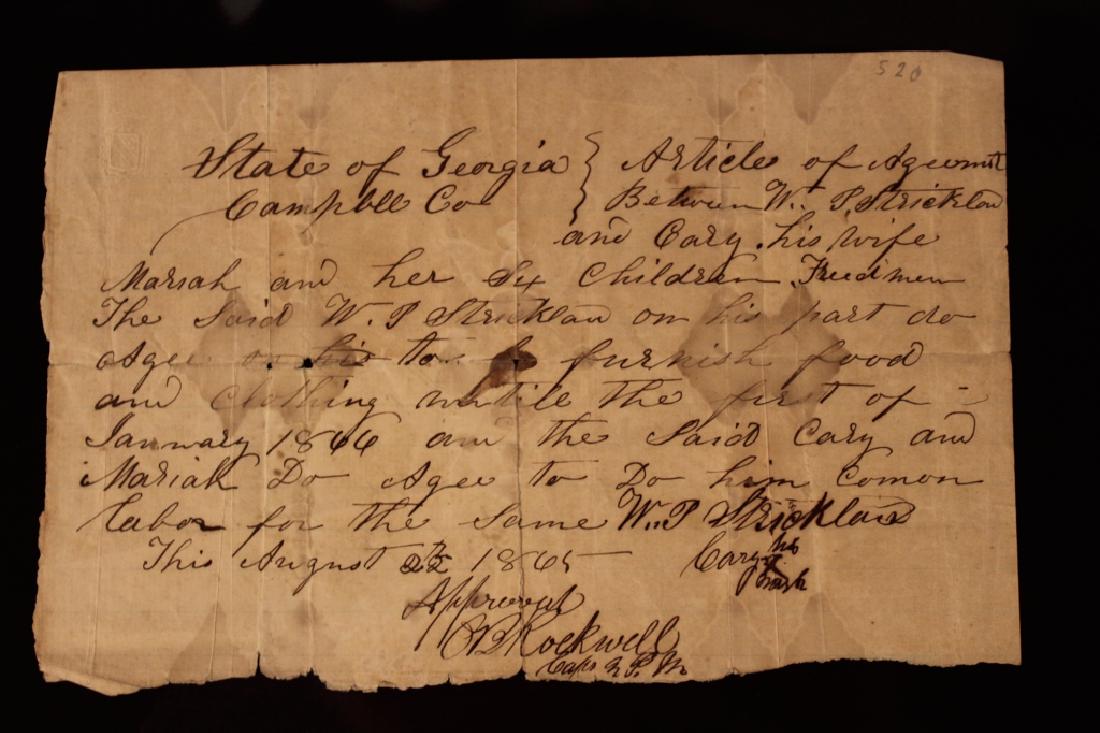 520
State of Georgia } Article of Ageemnt
Campbell Co } Between W. P. Stricklan
and Cary. his wife
Mariah and her Six Children. Freedmen
The Said W. P Stricklan on his part do
Agee to furnish food
and clothing untill the first of
January 1866 and the Said Cary and
Mariah Do Agee to Do him Comon
labor for the same W. P Strickland
This August 1865 Cary his
X mark
Approved
Rockwell
Capt & P. M